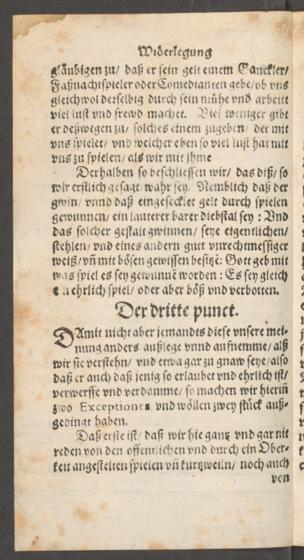 Widerlegung
gläubigen zu/ daß er sein gelt einem Ganckler/
Faßnachtspieler oder Comedianten gebe/ ob vns
gleichwol derselbig durch sein mühe vnd arbeit
viel lust vnd frewd machet. Viel weniger gibt
er deßwegen zu/ solches einem zugeben/ der mit
vns spielet/ vnd welcher eben so viel lust hat mit
vns zu spielen/ als wir mit jhme
Derhalben so beschliessen wir/ das diß/ so
wir erstlich gesagt wahr sey. Nemblich daß der
gwin/ vnnd daß eingesecklet gelt durch spielen
gewunnen/ ein lauterer barer diebstal sey: Vnd
das solcher gestalt gwinnen/ seye eigentlichen/
stehlen/ vnd eines andern gutt vnrechtmessiger
weiß/ vñ mit bösen gewissen besitzẽ: Gott geb mit
was spiel es sey gewunnẽ worden: Es sey gleich
ehrlich spiel/ oder aber böß vnd verbotten.
Der dritte punct.
DAmit nicht aber jemandts diese vnsere mei-
nung anders außlege vnnd auffnemme/ alß
wir sie verstehn/ vnd etwa gar zu gnaw seye/ also
daß er auch daß jenig so erlaubet vnd ehrlich ist/
verwerffe vnd verdamme/ so machen wir hierin̄
zwo Exceptiones vnd wöllen zwey stück auß-
gedingt haben.
Daß erste ist/ daß wir hie gantz vnd gar nit
reden von den offentlichen vnd durch ein Ober-
keit angestelten spielen vñ kurtzweiln/ noch auch
von